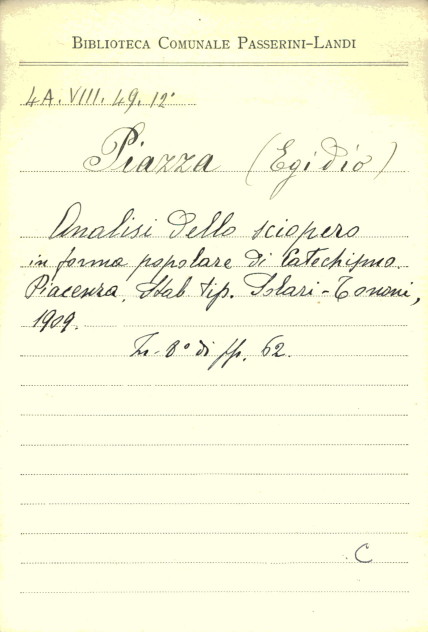 BIBLIOTECA COMUNALE PASSERINI-LANDI
4A. VIII. 49. 12°
Piazza (Egidio)
Analisi dello sciopero
in forma popolare di Catechismo.
Piacenza, Stab tip. Solari-Tononi,
1909.
In-8° di pp. 62.
C